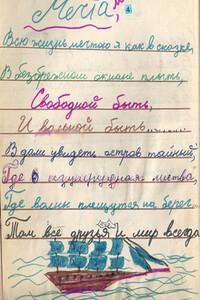 Мечта,
Всю жизнь мечтаю я как в сказке,
В безбрежном океане плыть,
Свободной быть,
И вольной быть......
Вдали увидеть остров тайный,
Где изумрудная листва,
Где волны плещутся на берег
Там всё друзья и мир всегда